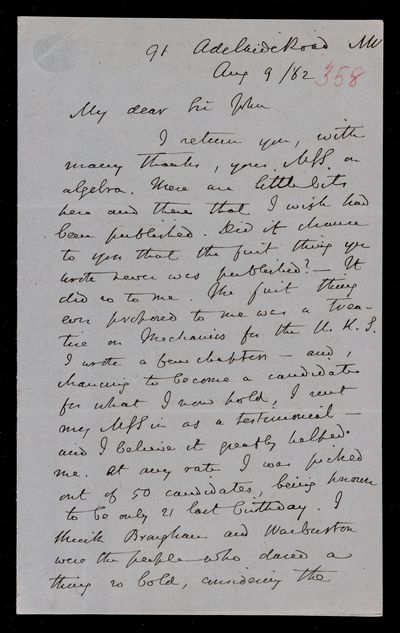 91 Adelaide Road NW
Aug 9 /62
358
My dear Sir John
I return you, with
many thanks, your MSS on
algebra. There are little bits
here and there that I wish had
been published. Did it chance
to you that the first thing you
wrote never was published? — It
did so to me. The first thing
ever proposed to me was a trea-
tise on Mechanics for the U. K. S.
I wrote a few chapters — and,
chancing to become a candidate
for what I now hold, I sent
my MSS in as a testimonial —
and I believe it greatly helped
me. At any rate I was picked
out of 50 candidates, being known
to be only 21 last birthday. I
think Brougham and Warburton
were the people who dared a
thing so bold, considering the